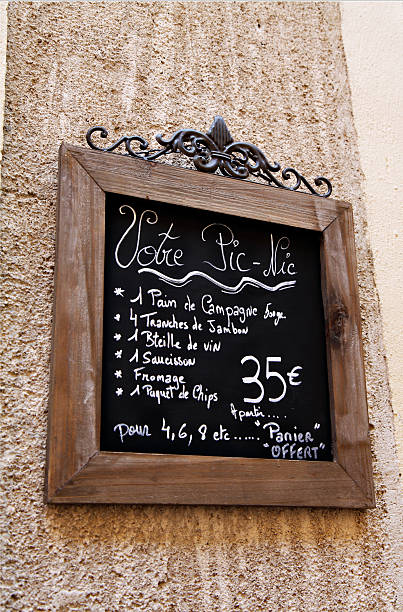 Votre Pic-Nic
* 1 Pain de Campagne
* 4 Tranches de Jambon
* 1 Bteille de vin
* 1 Saucisson
* Fromage
* 1 Paquet de Chips
35€
A partir....
pour 4, 6, 8 etc...... "Panier"
"OFFERT"